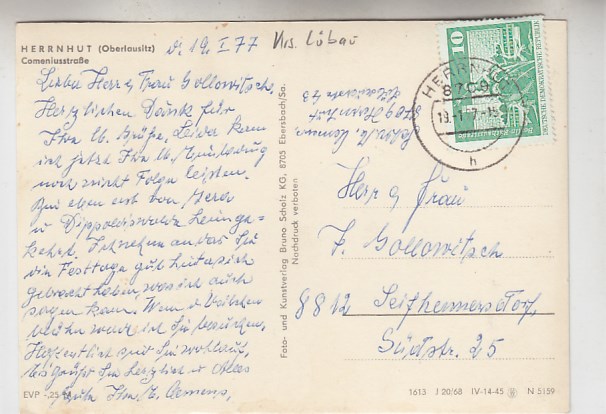 HERRNHUT (Oberlausitz)
Comeniusstraße
d. 19. I 77
Krs. Löbau
Liebe Herr & Frau Gollowitsch,
Herzlichen Dank für
Ihre lb. Grüße. Leider kann
ich jetzt Ihre lb. Einladung
noch nicht Folge leisten.
Bin eben erst von Gera
u Dippoldiswalde heimge-
kehrt. Ich nehme an das Sie
die Festtage gut hinter sich
gebracht haben, was ich auch
sagen kann. Wenn
werde ich Sie besuchen.
Hoffentlich sind Sie wohlauf.
Es grüßt Sie herzlich u alles
Gute Ihre M. Clemens,
EVP -,25 M
Foto- und Kunstverlag Bruno Scholz KG, 8705 Ebersbach/Sa.
Nachdruck verboten
8709 Herrnhut
10
DEUTSCHE DEMOKRATISCHE REPUBLIK
HERRNHUT
8709
19.-1.77-15
h
Herr & Frau
F. Gollowitsch
8812 Seifhennersdorf,
Südstr. 25
1613 J 20/68 IV-14-45 N 5159